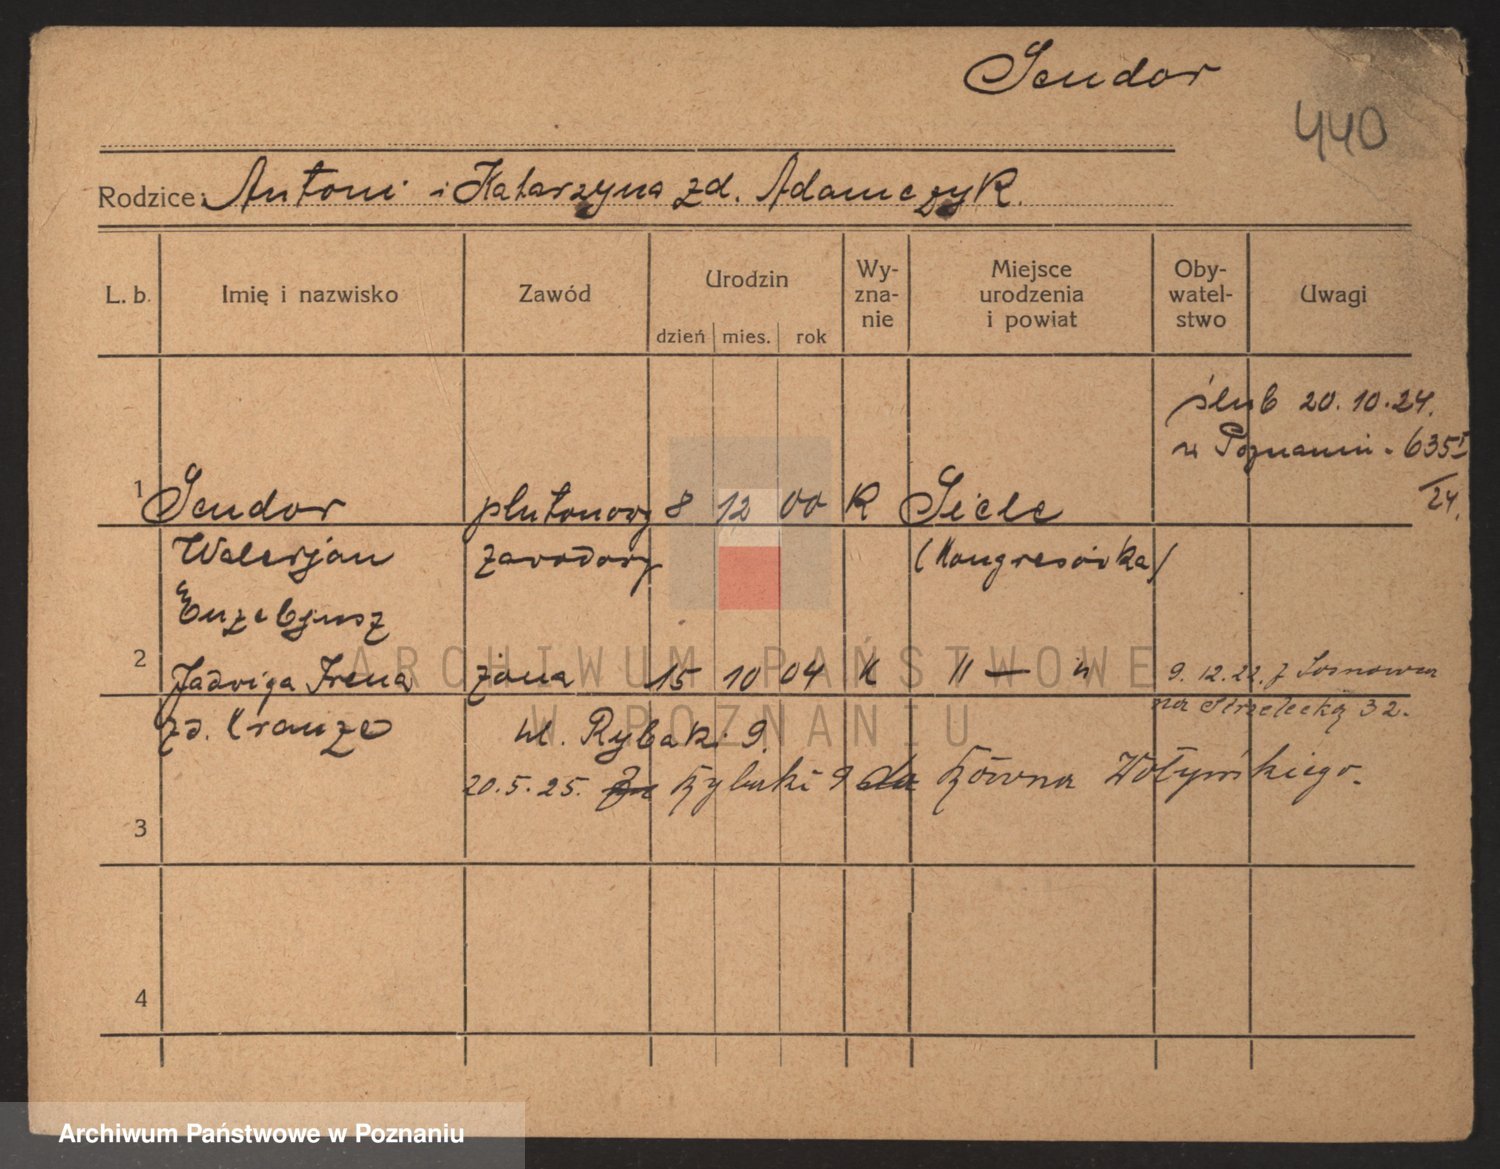 Sendor
440
Rodzice: Antoni i Katarzyna zd. Adamczyk.
L. b. Imię i nazwisko Zawód Urodzin dzień mies. rok Wy-zna-nie Miejsce urodzenia i powiat Oby-watel-stwo Uwagi
ślub 20.10.24.
w Poznaniu - 635I
/24.
1 Sendor plutonowy 8 12 00 K Sielc
Walerjan zawodowy (Kongresówka)
Euzebjusz
2 Jadwiga Irena żona 15 10 04 K " — " 9.12.22. z Sosnowca
na Strzelecką 32.
zd. Krauze ul. Rybaki 9.
20.5.25. Rybaki 9 do Równa Wołyńskiego.
3
4
ARCHIWUM PAŃSTWOWE
W POZNANIU
Archiwum Państwowe w Poznaniu